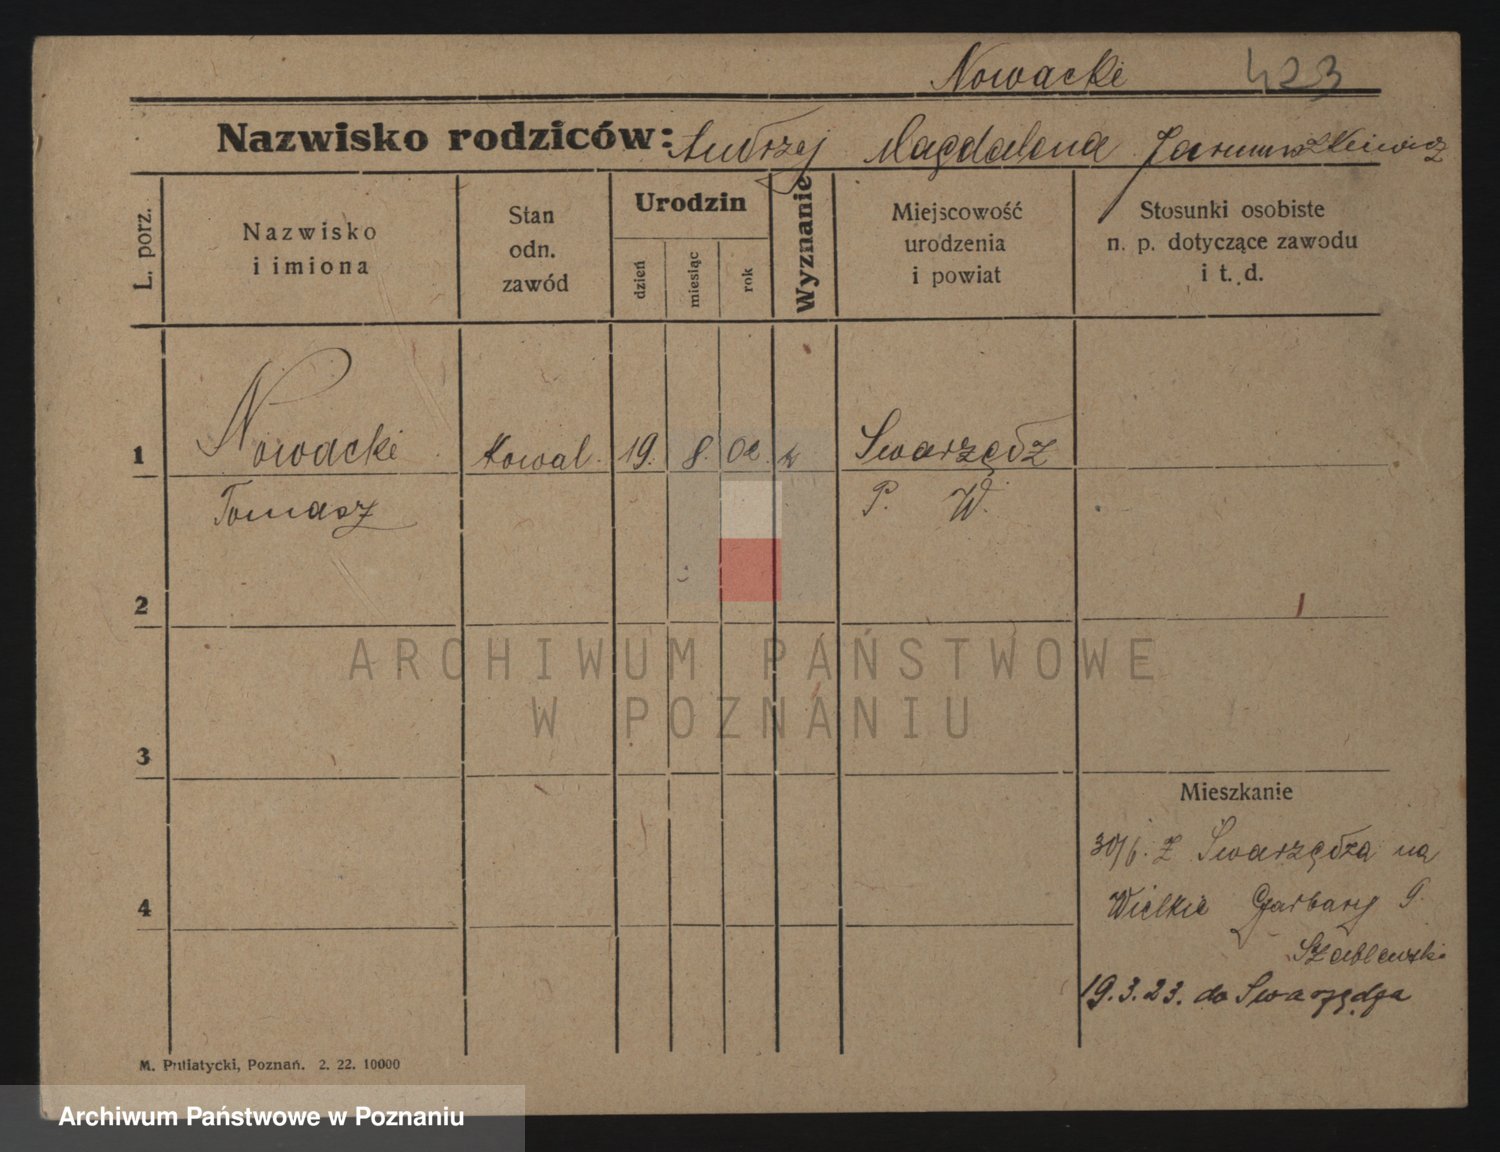 Nowacki 423
Nazwisko rodziców: Andrzej Magdalena
L. porz.
Nazwisko
i imiona
Stan
odn.
zawód
Urodzin
dzień
miesiąc
rok
Wyznanie
Miejscowość
urodzenia
i powiat
Stosunki osobiste
n. p. dotyczące zawodu
i t. d.
1 Nowacki Kowal. 19. 8. 02. k Swarzędz
Tomasz P. W.
2
3
4
Mieszkanie
30/6. z Swarzędza na
Wielkie Garbary 9.
Szablewski
19.3.23. do Swarzędza
M. Putiatycki, Poznań. 2. 22. 10000
ARCHIWUM PAŃSTWOWE
W POZNANIU
Archiwum Państwowe w Poznaniu